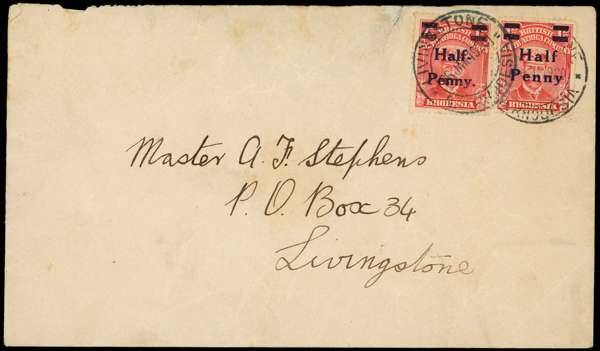 BRITISH
SOUTH AFRICA COMPANY
Half
Penny.
RHODESIA
BRITISH
Half
Penny
RHODESIA
LIVINGSTONE
RHODESIA
Master A. F. Stephens
P. O. Box 34
Livingstone